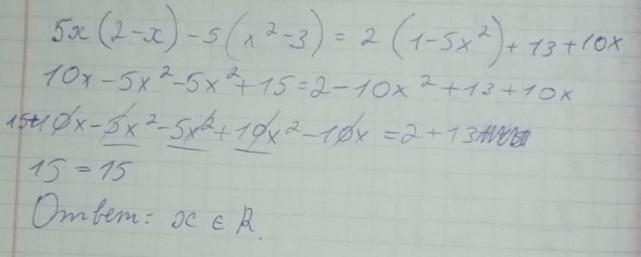 5x(2-x)-5(x²-3)=2(1-5x²)+13+10x
10x-5x²-5x²+15=2-10x²+13+10x
15+10x-5x²-5x²+10x²-10x=2+13
15=15
Ответ: x ∈ R.